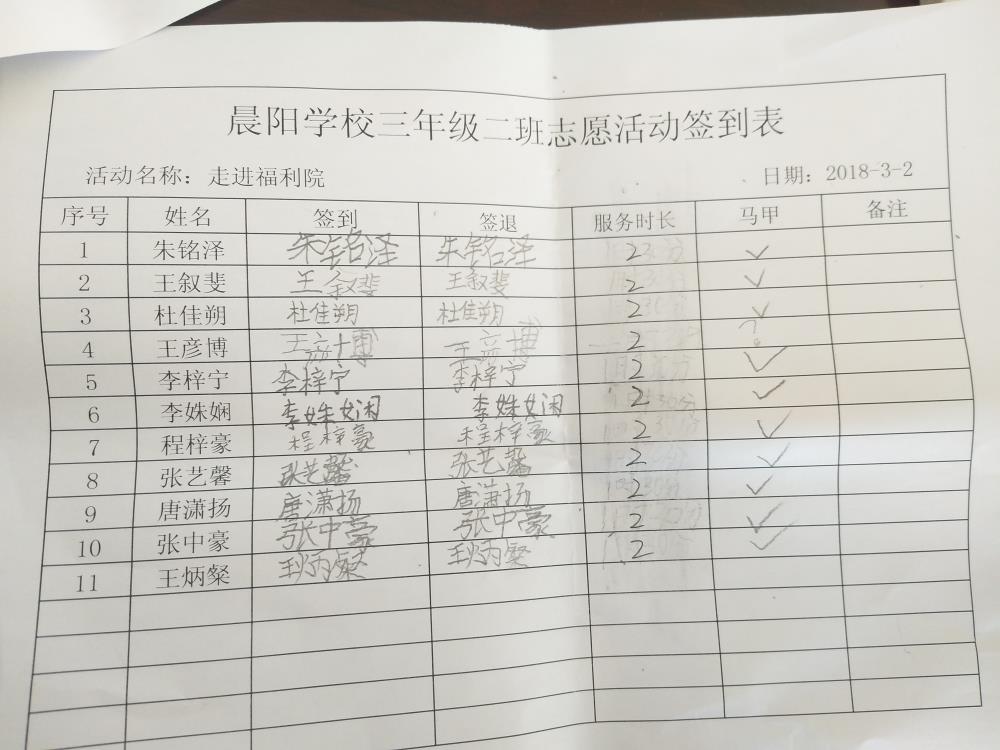 晨阳学校三年级二班志愿活动签到表
活动名称：走进福利院 日期：2018-3-2
序号 姓名 签到 签退 服务时长 马甲 备注
1 朱铭泽 朱铭泽 朱铭泽 2 ✓
2 王叙斐 王叙斐 王叙斐 2 ✓
3 杜佳朔 杜佳朔 杜佳朔 2 ✓
4 王彦博 王彦博 王彦博 2
5 李梓宁 李梓宁 李梓宁 2 ✓
6 李姝娴 李姝娴 李姝娴 2 ✓
7 程梓豪 程梓豪 程梓豪 2 ✓
8 张艺馨 张艺馨 张艺馨 2 ✓
9 唐潇扬 唐潇扬 唐潇扬 2 ✓
10 张中豪 张中豪 张中豪 2 ✓
11 王炳粲 王炳粲 王炳粲 2 ✓